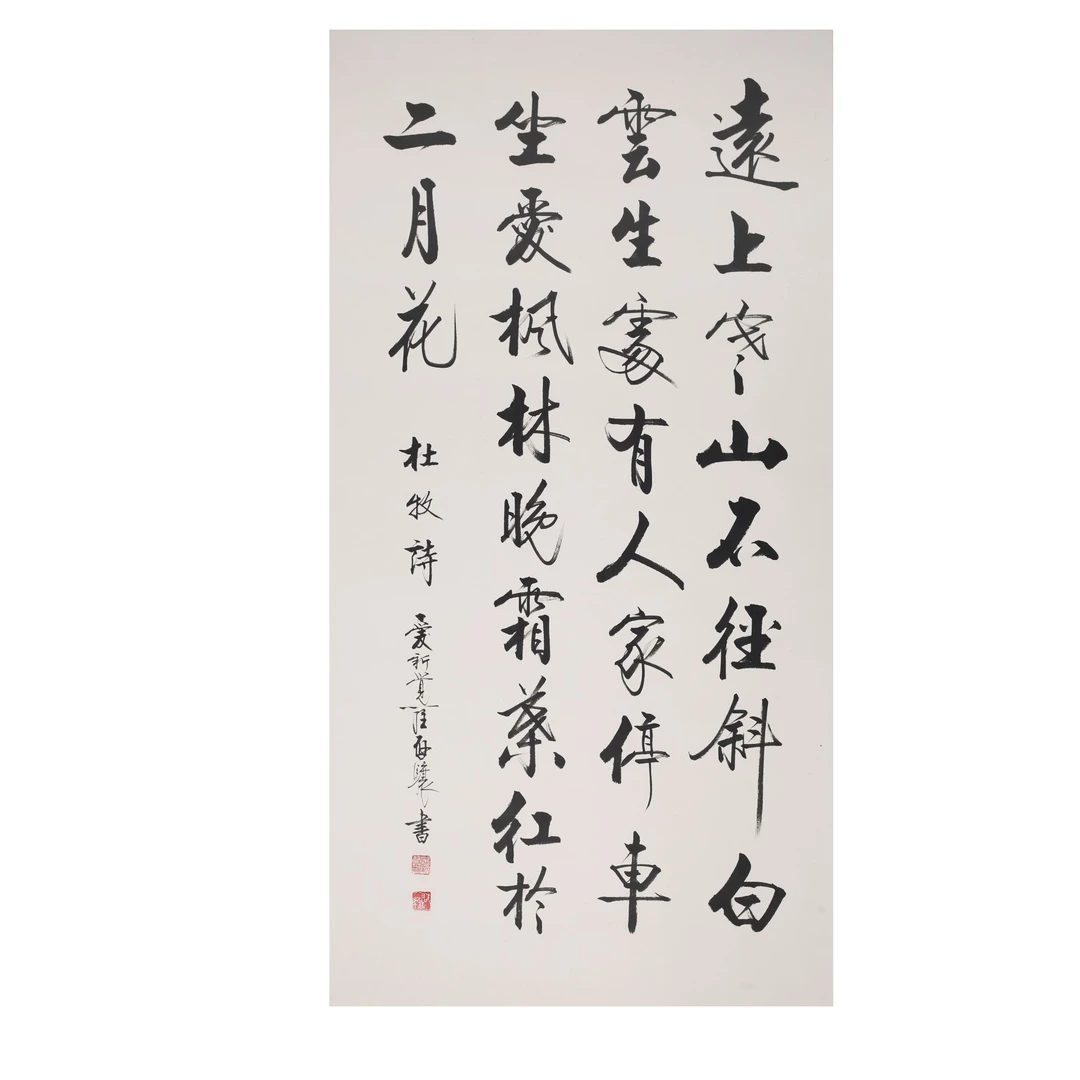 遠上寒山石徑斜白
雲生處有人家停車
坐愛楓林晚霜葉紅於
二月花 杜牧詩 愛新覺羅啟驤書